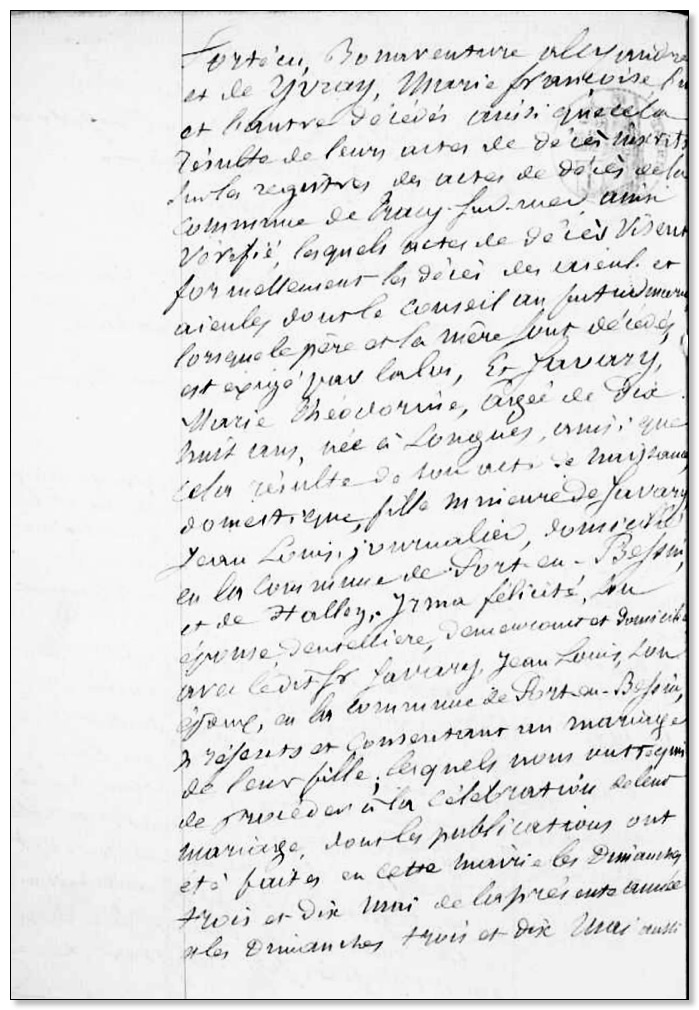 Bonaventure alexandre
et de Yvray, Marie françoise
et l'autre décédés ainsi que cela
résulte de leurs actes de décès inscrits
sur les registres des actes de décès de la
commune de Tracy-sur-mer ainsi
vérifié, lesquels actes de décès visent
formellement les décès des aieul et
aieules dont le conseil au futur
lorsque le père et la mère sont décédés,
est exigé par la loi, Et Javary,
Marie Théodorine, âgée de Dix
huit ans, née à Longues, ainsi que
cela résulte de son acte de naissance
domestique, fille mineure de Javary
Jean Louis, journalier, domicilié
en la commune de Port-en-Bessin,
et de Halley, Irma félicité, son
épouse, dentellière, demeurant et domiciliée
avec ledit Sr Javary, Jean Louis, son
époux, en la commune de Port-en-Bessin,
présents et consentant au mariage
de leur fille, lesquels nous ont requis
de procéder à la célébration de leur
mariage, dont les publications ont
été faites en cette mairie les Dimanches
trois et dix Mai de la présente année
et les Dimanches trois et dix Mai aussi